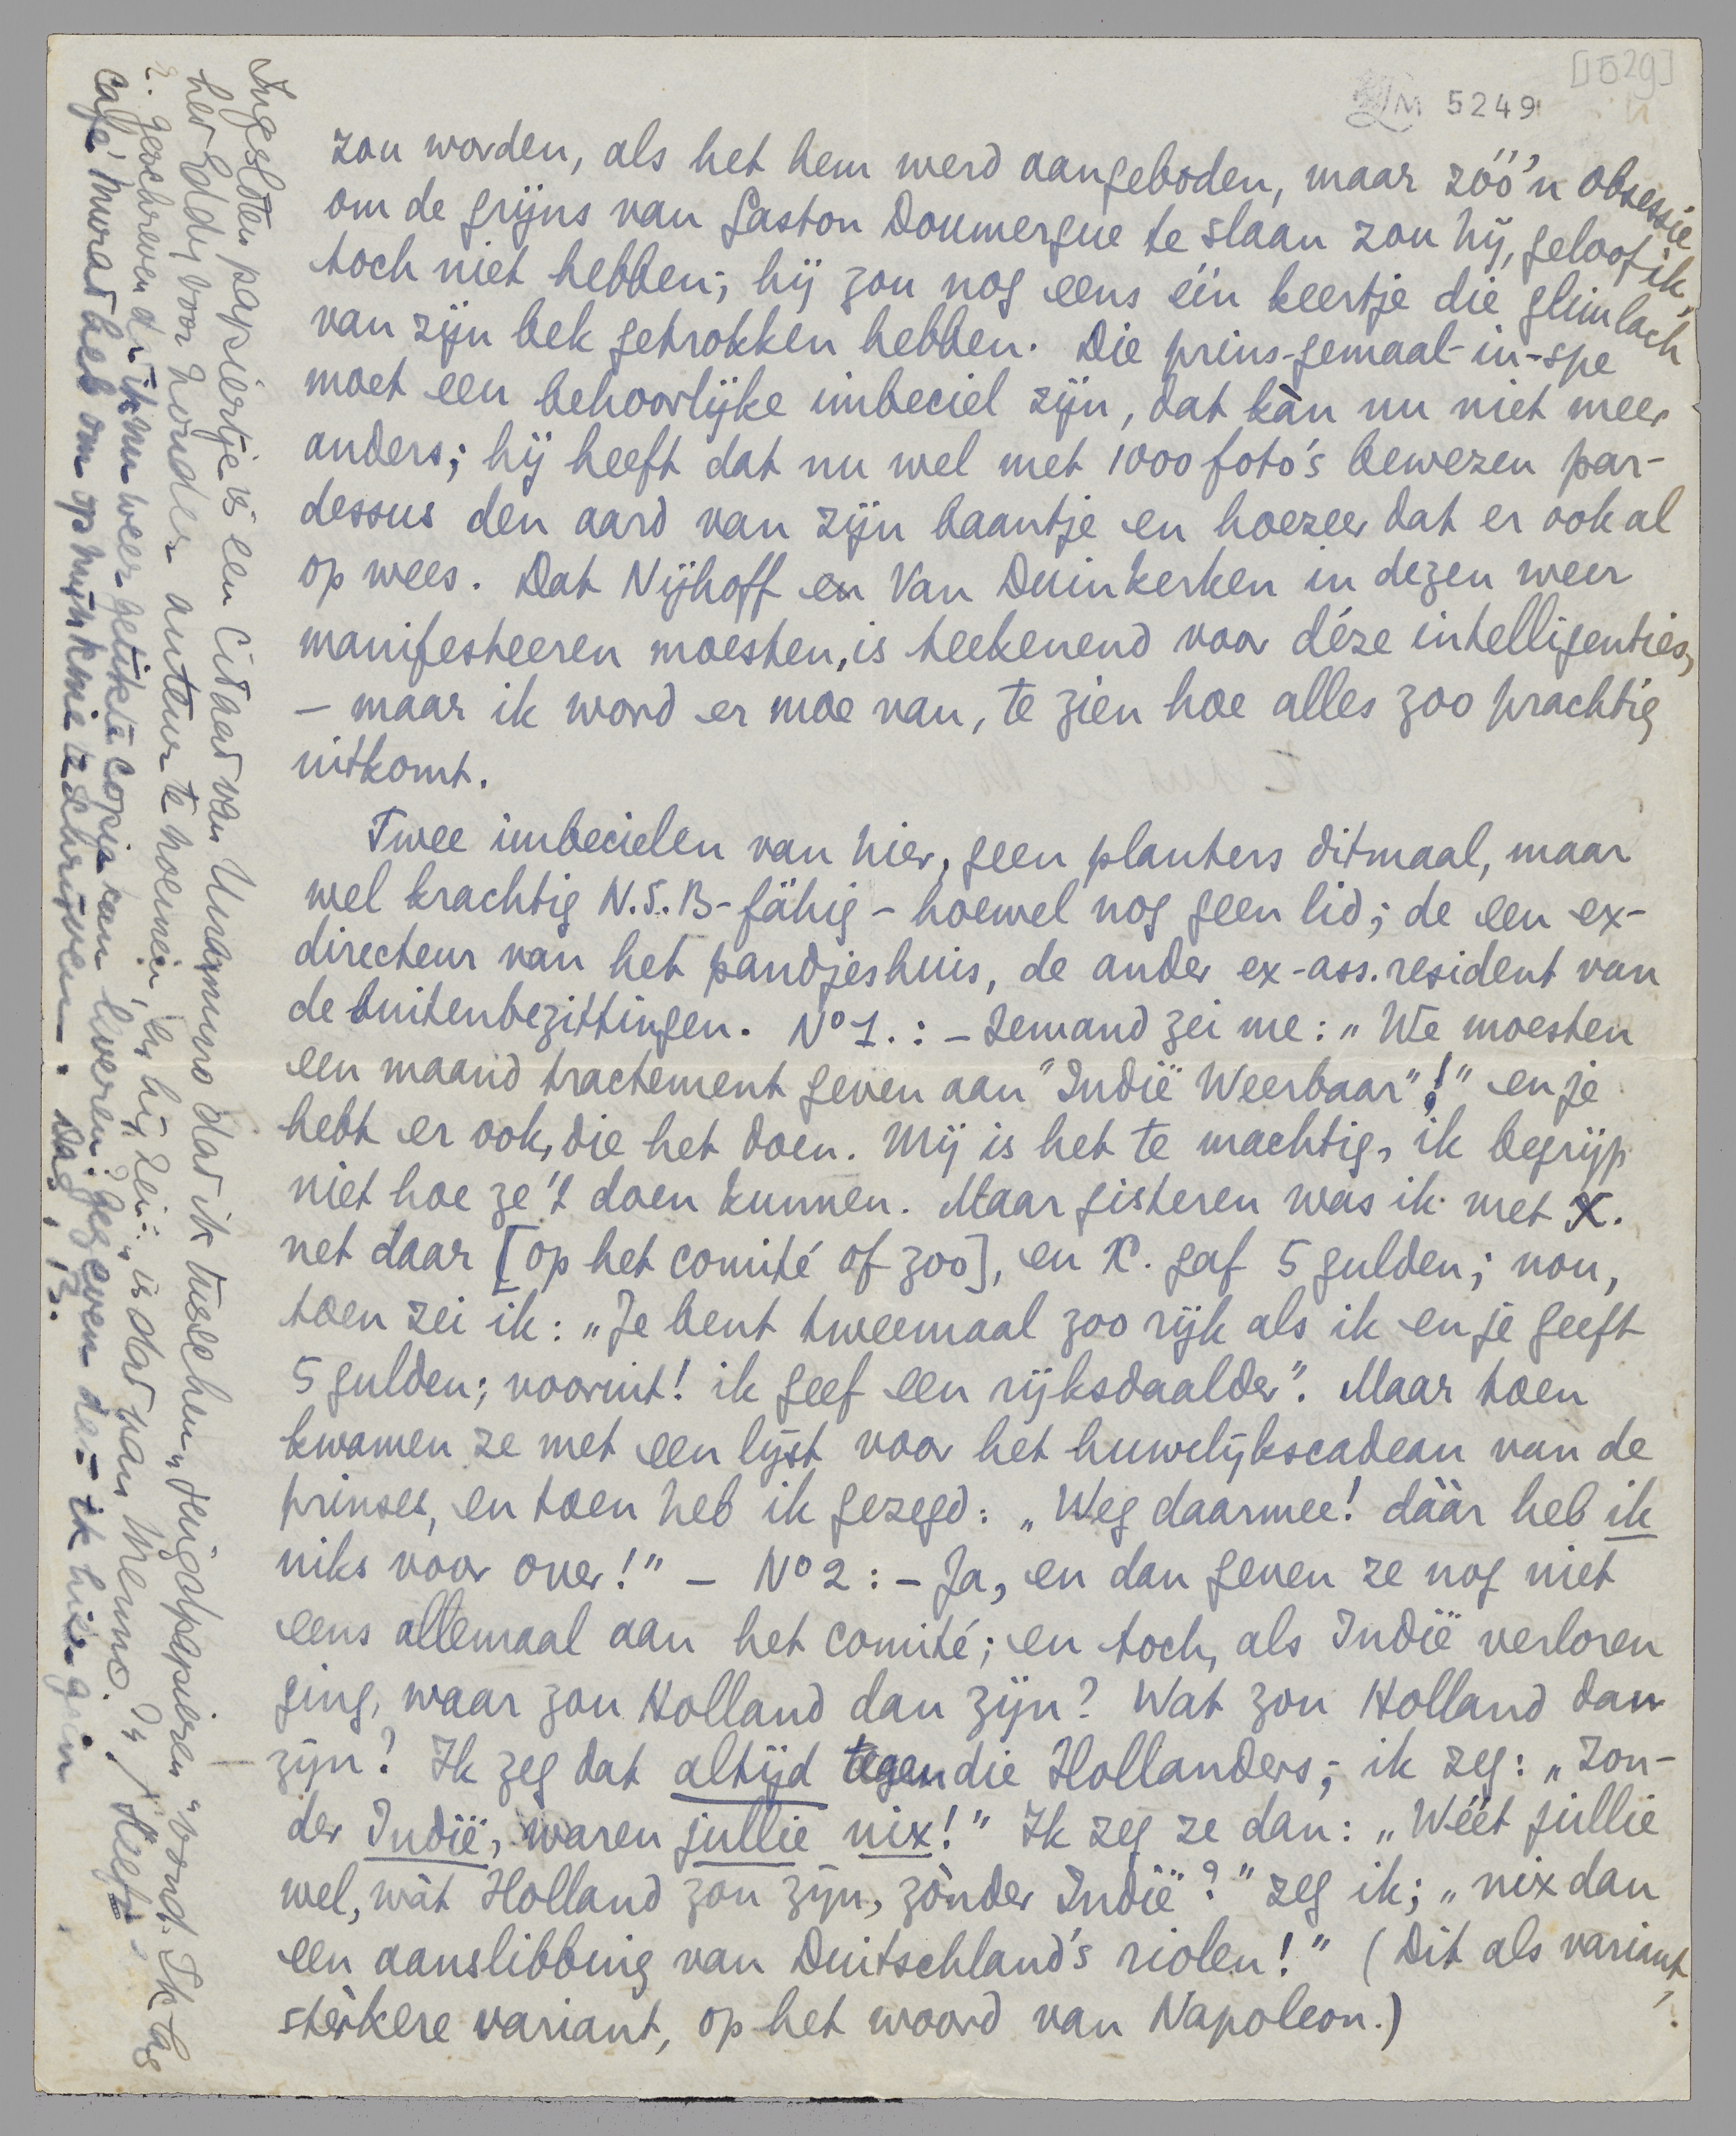 [1529]
LM 5249
zou worden, als het hem werd aangeboden, maar zóó'n obsessie
om de grijns van Gaston Doumergue te slaan zou hij, geloof ik,
toch niet hebben; hij zou nog eens één keertje die glimlach
van zijn bek getrokken hebben. Die prins-gemaal-in-spe
moet een behoorlijke imbeciel zijn, dat kàn nu niet meer
anders; hij heeft dat nu wel met 1000 foto's bewezen par-
dessus den aard van zijn baantje en hoezeer dat er ook al
op wees. Dat Nijhoff en Van Duinkerken in dezen weer
manifesteeren moesten, is teekenend voor déze intelligenties,
– maar ik word er moe van, te zien hoe alles zoo prachtig
uitkomt.
Twee imbecielen van hier, geen planters ditmaal, maar
wel krachtig N.S.B-fähig – hoewel nog geen lid; de een ex-
directeur van het pandjeshuis, de ander ex-ass.resident van
de buitenbezittingen. No 1.: – Iemand zei me: „We moesten
een maand tractement geven aan "Indië Weerbaar"!" en je
hebt er ook, die het doen. Mij is het te machtig, ik begrijp
niet hoe ze 't doen kunnen. Maar gisteren was ik met X.
net daar [op het comité of zoo], en X. gaf 5 gulden; nou,
toen zei ik: „Je bent tweemaal zoo rijk als ik en je geeft
5 gulden; vooruit! ik geef een rijksdaalder". Maar toen
kwamen ze met een lijst voor het huwelijkscadeau van de
prinses, en toen heb ik gezegd: „Weg daarmee! dààr heb ik
niks voor over!" – No 2: – Ja, en dan geven ze nog niet
eens allemaal aan het comité; en toch, als Indië verloren
ging, waar zou Holland dan zijn? Wat zou Holland dan
zijn? Ik zeg dat altijd tegen die Hollanders; ik zeg: „Zon-
der Indië, waren jullie nix!" Ik zeg ze dan: „Wéét jullie
wel, wàt Holland zou zijn, zònder Indië?" zeg ik; „nix dan
een aanslibbing van Duitschland's riolen!" (Dit als variant,
stèrkere variant, op het woord van Napoleon.)
Ingesloten papiertje is een citaat van Unamuno dat ik tusschen „jeugdpapieren" vond. Ik las
het Eddy voor zonder auteur te noemen, en hij zei: „is dat van Menno?" Heeft
geschreven dat ik nu weer getikte copie kan leveren, gegeven dat ik hier geen
café Murat heb om op mijn knie te schrijven. Dag, B.